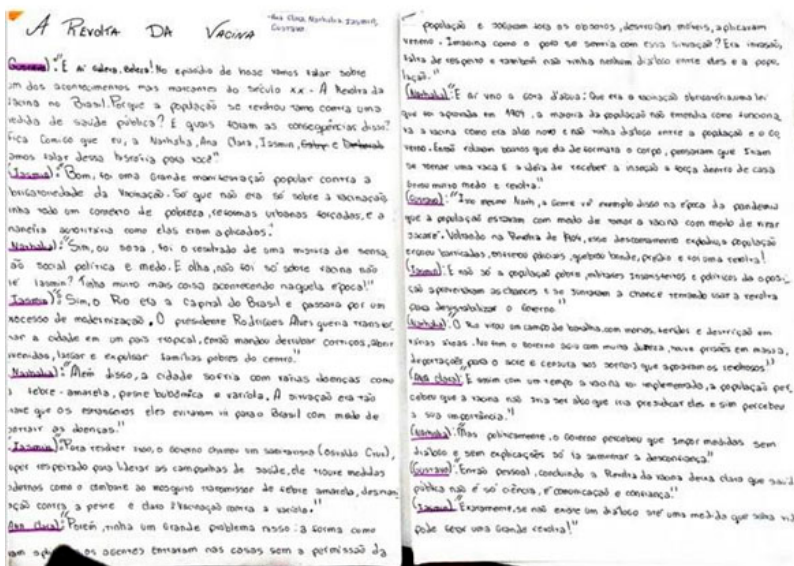 A REVOLTA DA VACINA
Ana Clara, Nathalia, Iasmin,
Gustavo
(Gustavo): "E aí galera, beleza! No episódio de hoje vamos falar sobre
um dos acontecimentos mais marcantes do século XX - A Revolta da
Vacina no Brasil. Porque a população se revoltou tanto contra uma
medida de saúde pública? E quais foram as consequências disso?
Fica comigo que eu, a Nathalia, Ana Clara, Iasmin, e
vamos falar dessa história para você"
(Iasmin): "Bom, foi uma grande manifestação popular contra a
obrigatoriedade da vacinação. Só que não era só sobre a vacinação,
tinha todo um contexto de pobreza, reformas urbanas forçadas, e a
maneira autoritária como elas eram aplicadas."
(Nathalia): "Sim, ou seja, foi o resultado de uma mistura de tensa
ão social política e medo. E olha, não foi só sobre vacina não
né Iasmin? Tinha muito mais coisa acontecendo naquela época!"
(Iasmin): "Sim, o Rio era a capital do Brasil e passava por um
processo de modernização. O presidente Rodrigues Alves queria transfor
mar a cidade em um país tropical, então mandou derrubar cortiços, abrir
avenidas, e expulsar famílias pobres do centro."
(Nathalia): "Além disso, a cidade sofria com várias doenças como
a febre-amarela, peste bubônica e varíola. A situação era tão
grave que os estrangeiros eles evitavam vir para o Brasil com medo de
contrair as doenças."
(Iasmin): "Para resolver isso, o governo chamou um sanitarista (Osvaldo Cruz),
super respeitado para liderar as campanhas de saúde, ele trouxe medidas
modernas como o combate ao mosquito transmissor de febre amarela,
contra a peste e claro a vacinação contra a varíola."
(Ana Clara): "Porém, tinha um grande problema nisso: a forma como
os agentes entravam nas casas sem a permissão da
população e jogavam fora os objetos, destruíam móveis, aplicavam
veneno. Imagina como o povo se sentia com essa situação? Era invasão,
falta de respeito e também não tinha nenhum diálogo entre eles e a popu
lação."
(Nathalia): "E aí veio a gota d'água: Que era a vacinação obrigatória, uma lei
que foi aprovada em 1904, a maioria da população não entendia como funciona
va a vacina como era algo novo e não tinha diálogo entre a população e o go
verno. Então rolavam boatos que ela deformava o corpo, pensavam que iriam
se tornar uma vaca e a ideia de receber a injeção a força dentro de casa
gerou muito medo e revolta."
(Gustavo): "Isso mesmo Nath, a gente vê exemplo disso na época da pandemia
que a população estavam com medo de tomar a vacina com medo de virar
jacaré. Voltando na Revolta de 1904, esse descontentamento explodiu, a população
ergueu barricadas, enfrentou policiais, quebrou bonde, prédio e foi uma revolta!
(Iasmin): E não só a população pobre, militares insatisfeitos e políticos da oposi
ção aproveitaram as chances e se juntaram a chance tentando usar a revolta
para desestabilizar o governo"
(Nathalia): O Rio virou um campo de batalha, com mortos, feridos e destruição em
várias áreas. No fim o governo agiu com muita dureza, houve prisões em massa,
deportações para o acre e censura aos jornais que apoiaram os revoltosos"
(Ana Clara): E assim com um tempo a vacina foi implementada, a população per
cebeu que a vacina não seria ser algo que iria prejudicar eles e sim percebeu
a sua importância."
(Nathalia): Mas politicamente, o governo percebeu que impor medidas sem
diálogo e sem explicações só ia aumentar a desconfiança."
(Gustavo): Então pessoal, concluindo a Revolta da vacina deixa claro que saúde
pública não é só ciência, é comunicação e confiança."
(Iasmin): Exatamente, se não existe um diálogo até uma medida que salva vida
pode gerar uma grande revolta!"